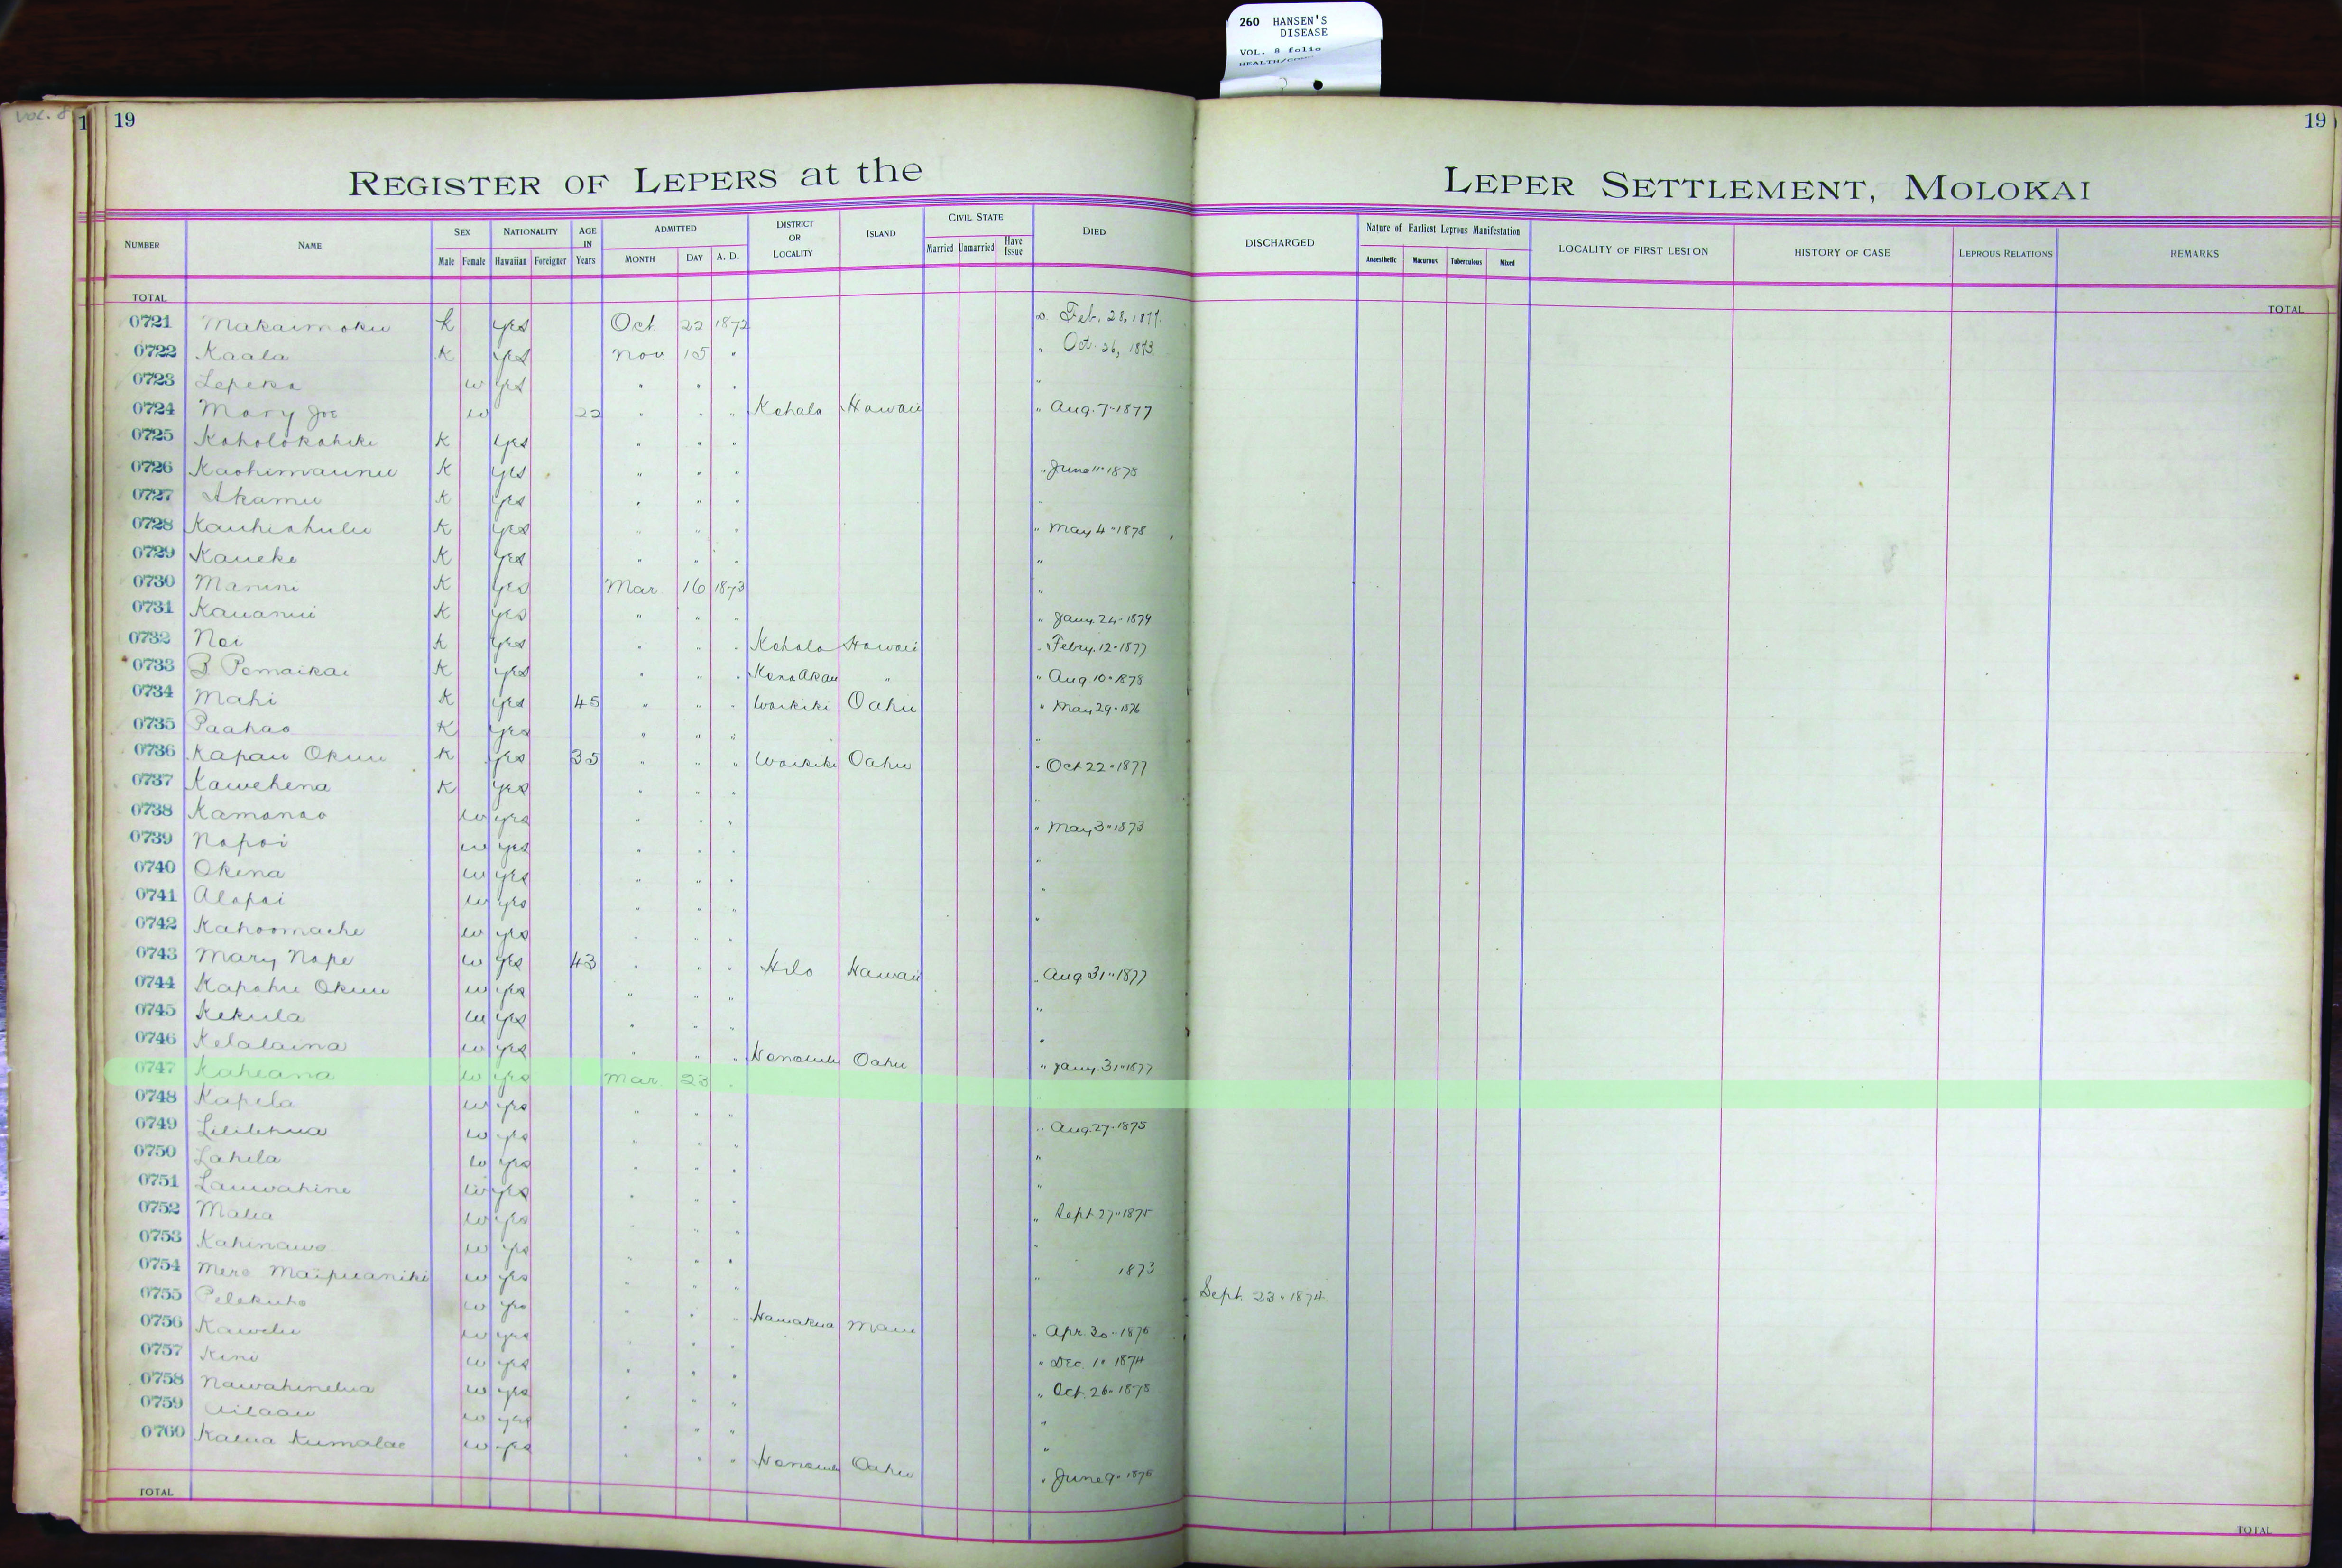 260 HANSEN'S
DISEASE
VOL. 8 folio
Vol. 8
1 19
19
REGISTER OF LEPERS at the
LEPER SETTLEMENT, MOLOKAI
NUMBER NAME SEX Male Female NATIONALITY Hawaiian Foreigner AGE IN Years ADMITTED MONTH DAY A. D. DISTRICT OR LOCALITY ISLAND CIVIL STATE Married Unmarried Have Issue DIED
DISCHARGED Nature of Earliest Leprous Manifestation Anaesthetic Macurous Tuberculous Mixed LOCALITY OF FIRST LESION HISTORY OF CASE LEPROUS RELATIONS REMARKS
TOTAL
TOTAL
0721 Makaimoku K yes Oct 22 1872 Feb. 28, 1877.
0722 Kaala K yes Nov 15 " " Oct. 26, 1873.
0723 Lepeka w yes " " " "
0724 Mary Joe w 22 " " " Kohala Hawaii " Aug. 7-1877
0725 Koholokahiki K yes " " "
0726 Kaohimaunu K yes " " " " June 11-1875
0727 Akamu K yes " " " "
0728 Kauhiahulu K yes " " " " May 4-1875
0729 Kaueke K yes " " " "
0730 Manini K yes Mar 16 1873 "
0731 Kauanui K yes " " " " Jany. 24-1874
0732 Noi K yes " " " Kohala Hawaii " Febry. 12-1877
0733 B Pomaikai K yes " " " Kona Akau " " Aug 10-1878
0734 Mahi K yes 45 " " " Waikiki Oahu " May 29-1876
0735 Paahao K yes " " " "
0736 Kapau Okuu K yes 35 " " " Waikiki Oahu " Oct 22-1877
0737 Kawehena K yes " " " "
0738 Kamanao w yes " " " " May 3-1873
0739 Napoi w yes " " " "
0740 Okina w yes " " " "
0741 Alapai w yes " " " "
0742 Kahoomaehe w yes " " "
0743 Mary Nape w yes 43 " " " Hilo Hawaii " Aug 31-1877
0744 Kapahu Okuu w yes " " " "
0745 Kekula w yes " " " "
0746 Kelalaina w yes " " " Honolulu Oahu " Jany. 31-1877
0747 Kaheana w yes Mar 23 " "
0748 Kapela w yes " " " " Aug. 27-1875
0749 Lililehua w yes " " " "
0750 Lahela w yes " " " "
0751 Lauwahine w yes " " " " Sept. 27-1875
0752 Malia w yes " " " "
0753 Kahinawe w yes " " " " 1873
0754 Mere Maipuaniki w yes " " " Sept. 23-1874
0755 Pelekuho w yes " " " Hamakua Maui " Apr. 30-1876
0756 Kawelu w yes " " " " Dec. 1- 1874
0757 Kini w yes " " " " Oct. 26-1875
0758 Nawahinelua w yes " " " "
0759 Ailaau w yes " " " "
0760 Kalua Kumalae w yes " " " Honolulu Oahu " June 9-1876
TOTAL
TOTAL